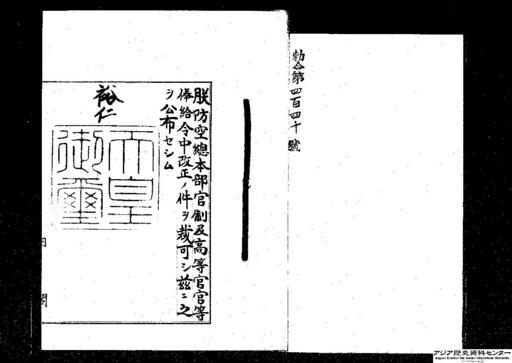 勅令第四百四十號
朕防空總本部官制及高等官官等
俸給令中改正ノ件ヲ裁可シ茲ニ之
ヲ公布セシム
裕仁
天皇
御璽
内閣
アジア歴史資料センター
Japan Center for Asian Historical Records